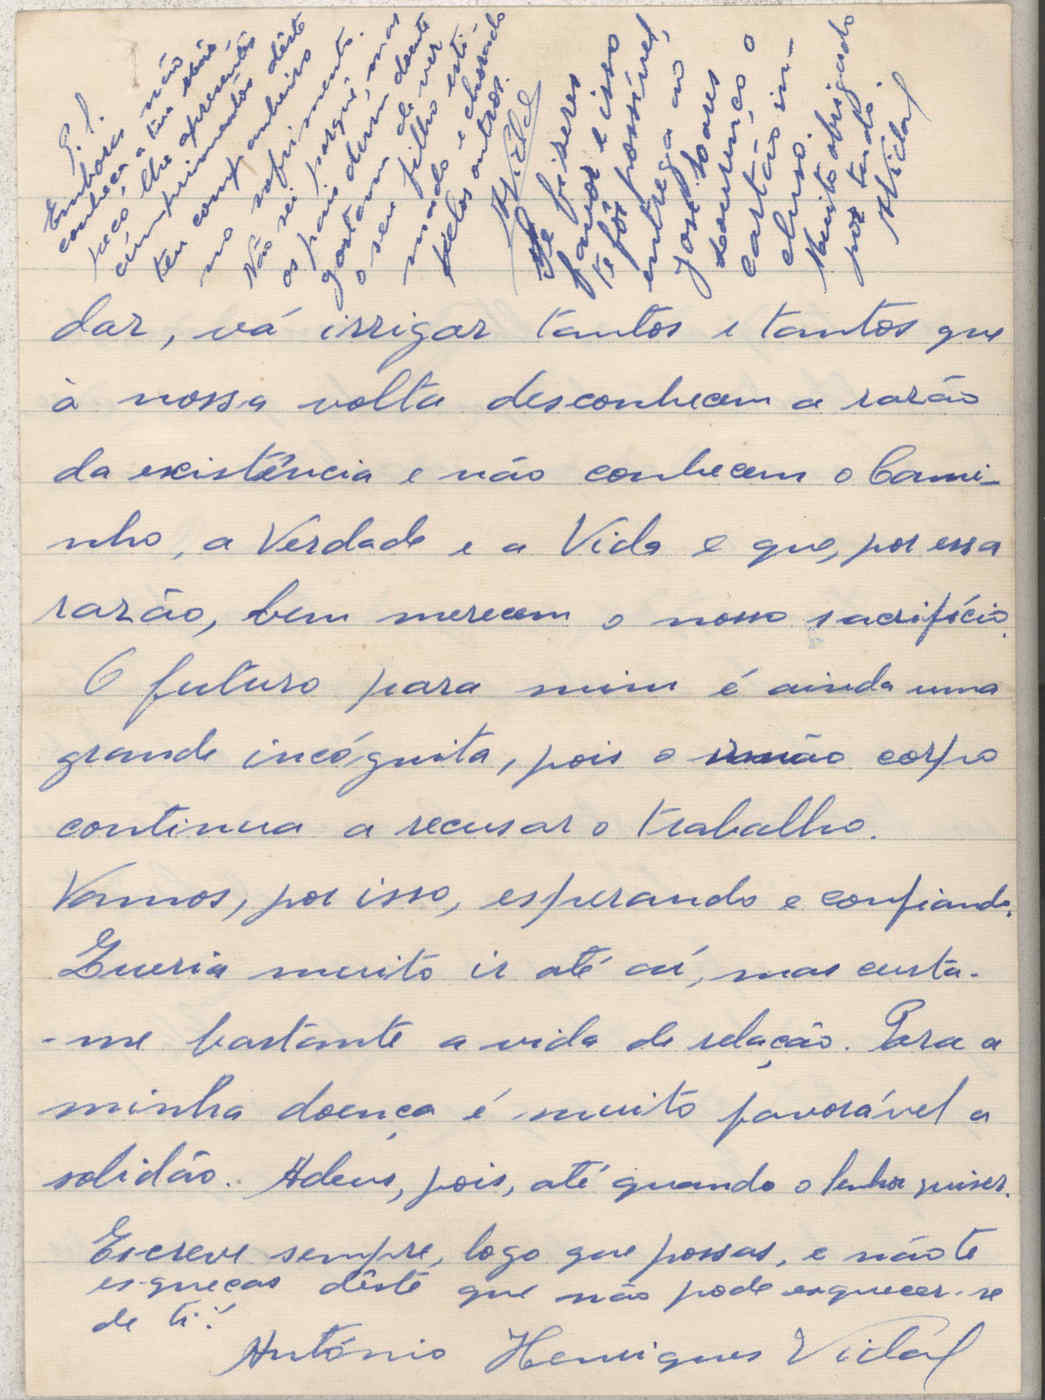 P.S.
Embora não
conheça a tua mãe,
peço lhe apresentes
cumprimentos dêste
teu companheiro
no sofrimento.
Não sei porquê, mas
os pais devem dente
gostam de ver
o seu filho esti-
mado e chorado
pelos outros.
AVidal
Se fizeres
favor e isso
te fôr possível,
entrega ao
José Soares
Lourenço o
cartão in-
cluso.
Muito obrigado
por tudo.
AVidal
dar, vá irrigar tantos e tantos que
à nossa volta desconhecem a razão
da existência e não conhecem o Cami-
nho, a Verdade e a Vida e que, por essa
razão, bem merecem o nosso sacrifício.
O futuro para mim é ainda uma
grande incógnita, pois o irmão corpo
continua a recusar o trabalho.
Vamos, por isso, esperando e confiando.
Queria muito ir até aí, mas custa-
-me bastante a vida de relação. Para a
minha doença é muito favorável a
solidão. Adeus, pois, até quando o Senhor quiser.
Escreve sempre, logo que possas, e não te
esqueças dêste que não pode esquecer-se
de ti!
António Henriques Vidal